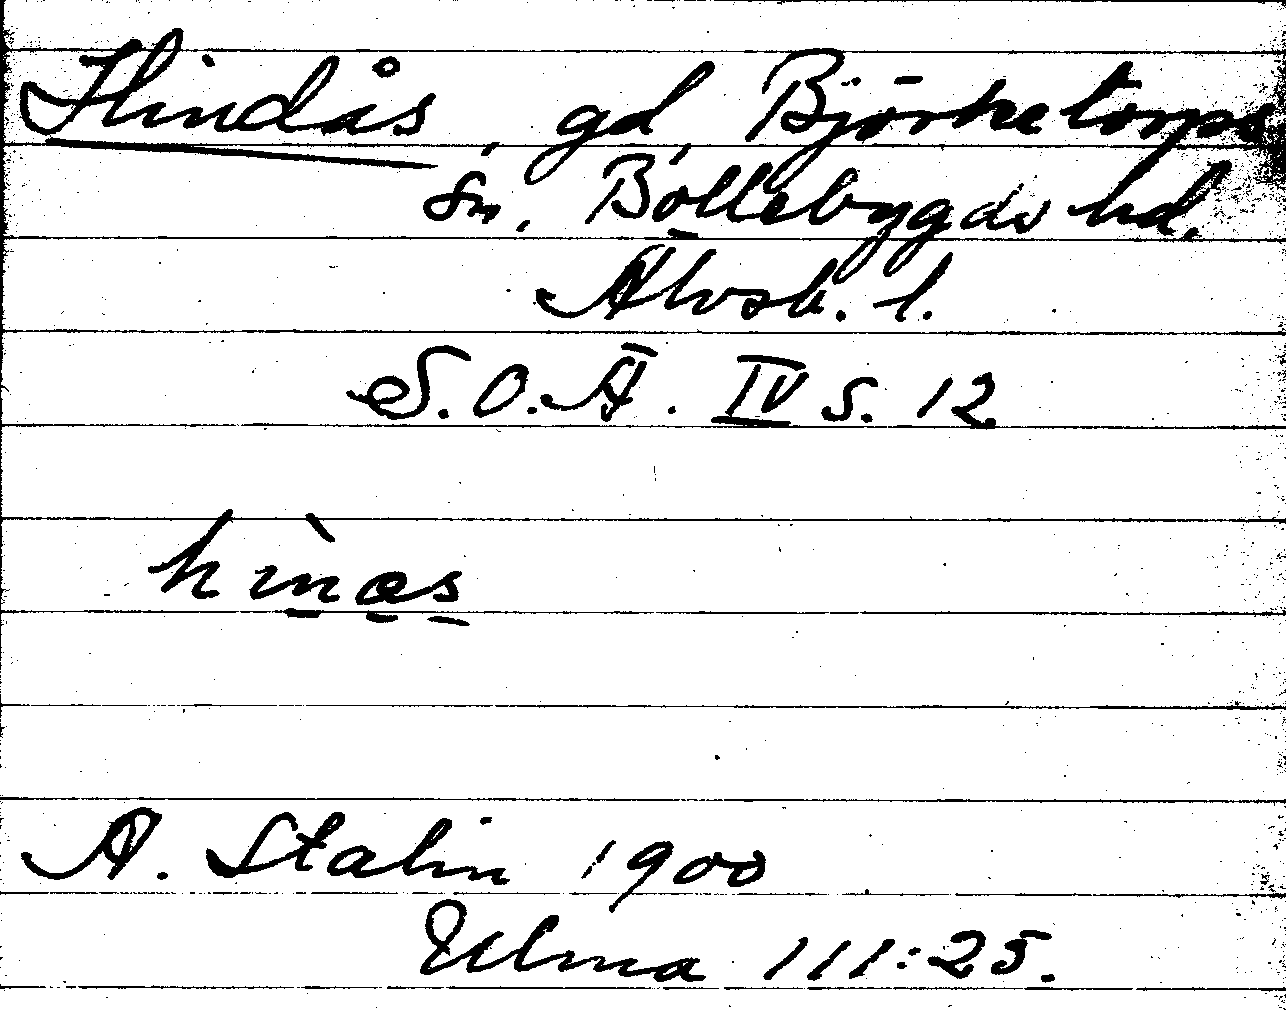 Hindås, gd, Björketorps
sn, Bollebygds hd,
Älvsb. l.
S.O.Ä. IV s. 12
hìnæs
A. Stalin 1900
Ulma 111:25.